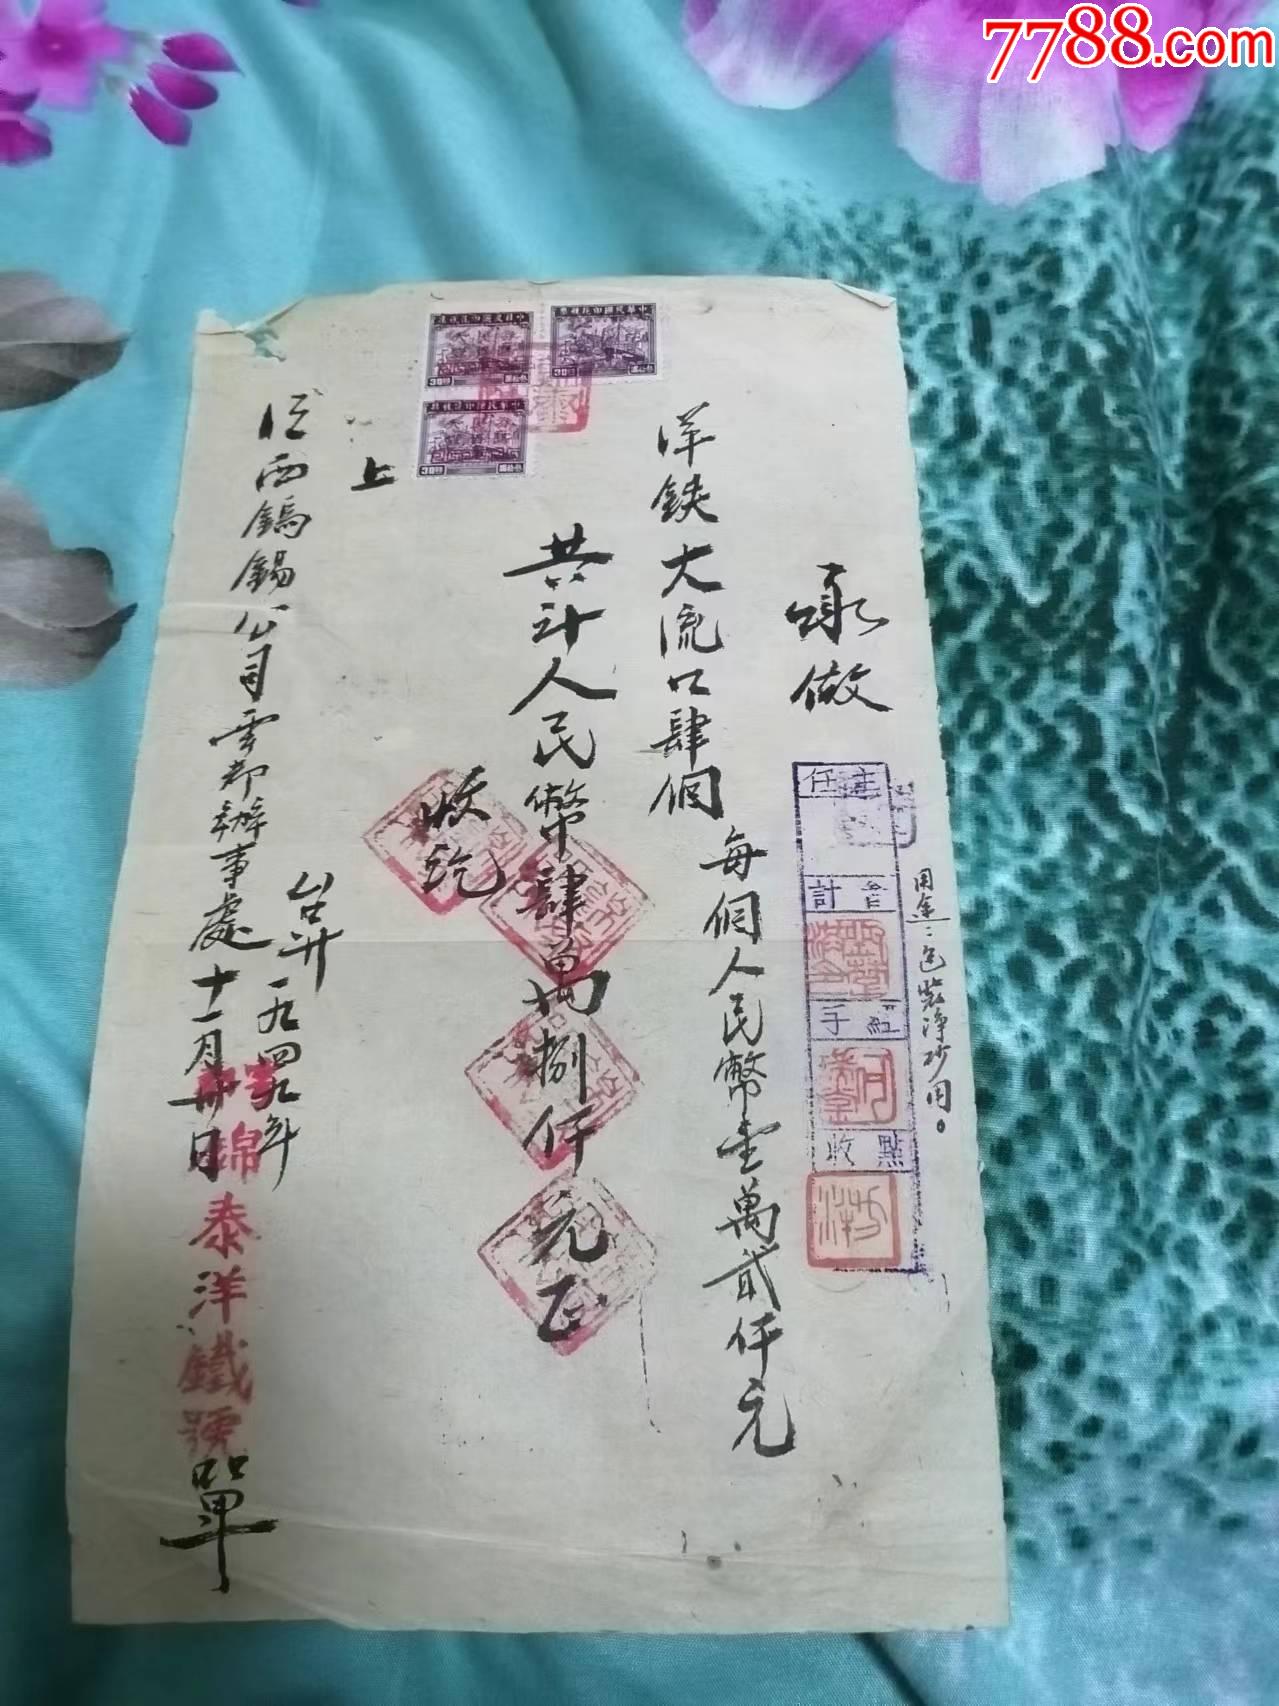 7788.com
用途：包裝淨砂用。
主任
會計
經手
點收
承做
洋鉄大流口肆個 每個人民幣壹萬貳仟元
共計人民幣肆萬捌仟元正
收訖
上
江西鎢錫公司雩都辦事處
台升
一九四九年
十一月卅日
錦泰洋鐵號
單
中華民國印花稅票
30
30
30